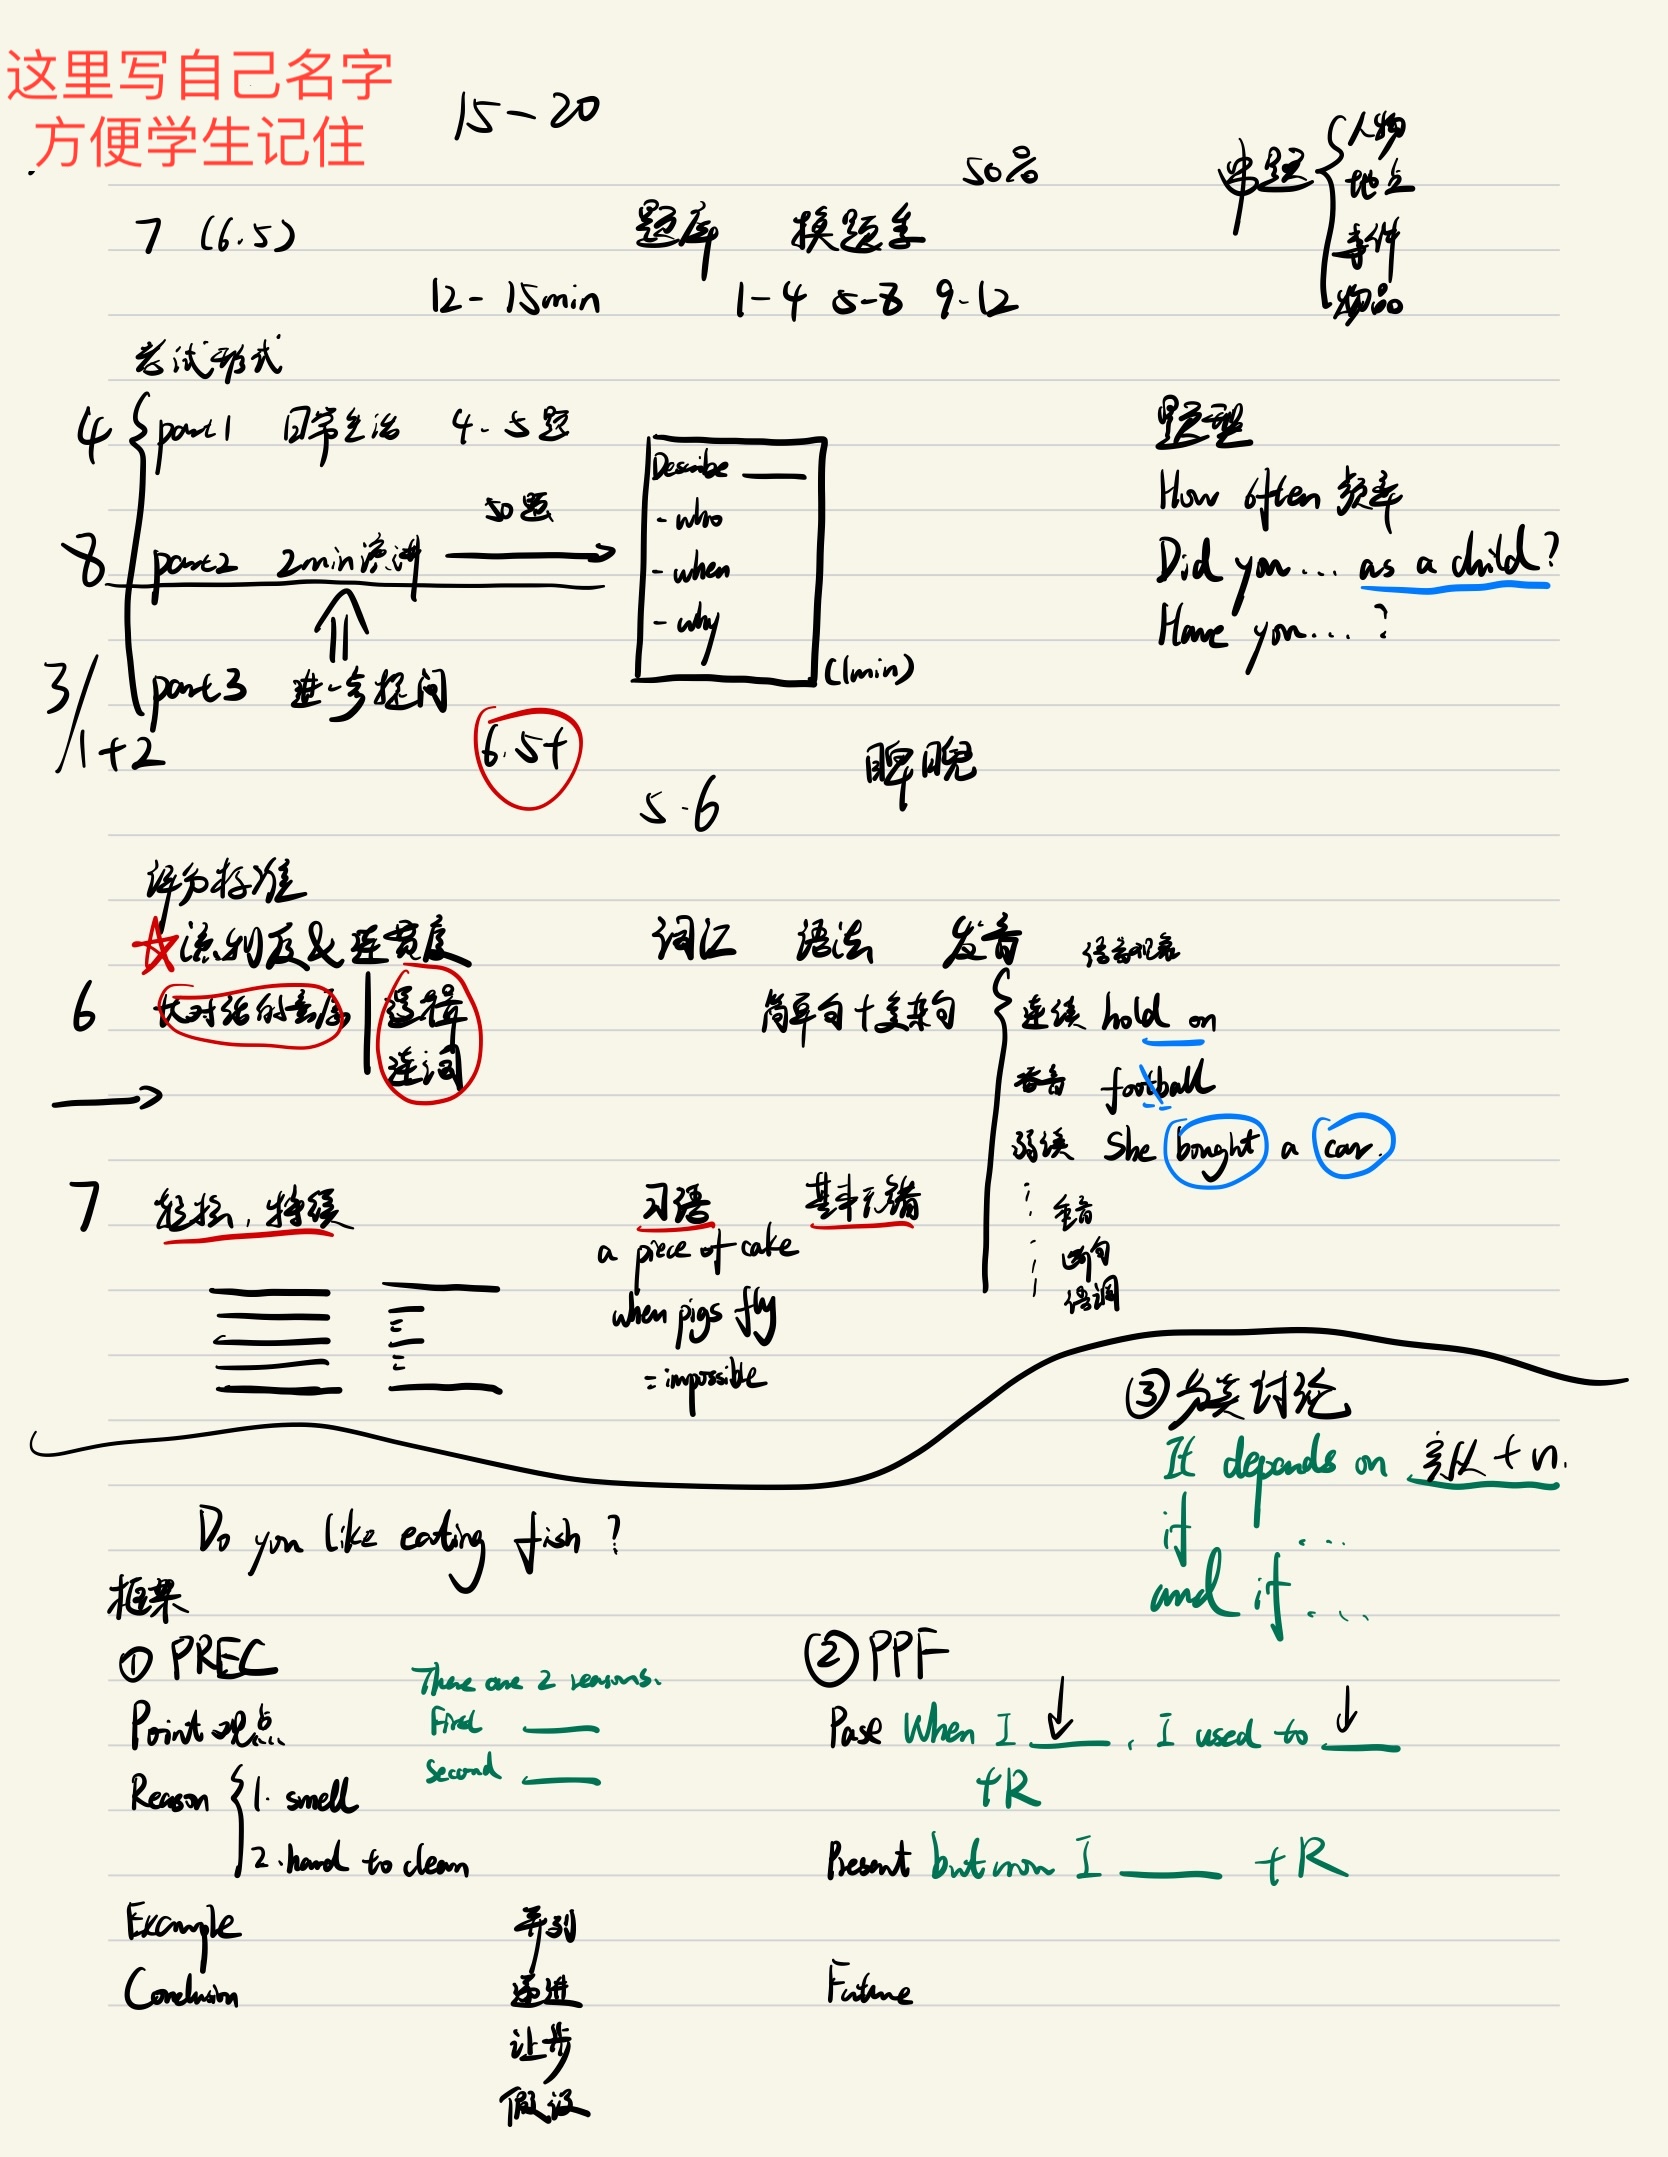 这里写自己名字
方便学生记住
15-20
50%
串题
人物
地点
事件
物品
7 (6.5)
题库 换题季
12-15min
1-4 5-8 9-12
考试形式
4 part1 日常生活 4-5题
8 part2 2min演讲
50题
Describe
- who
- when
- why
(1min)
题型
How often 频率
Did you... as a child?
Have you... ?
3/1+2
part3 进一步提问
6.5+
5-6
睥睨
评分标准
流利度&连贯度 词汇 语法 发音 语音现象
6 长对话的意愿 逻辑 简单句+复杂句
连词
连读 hold on
吞音 football
弱读 She bought a car.
重音
断句
语调
7 轻松,持续 习语 基本无错
a piece of cake
when pigs fly
=impossible
③分类讨论
It depends on 宾从+n.
if ...
and if ...
Do you like eating fish?
框架
① PREC
There are 2 reasons.
Point 观点
First
Second
Reason
1. smell
2. hard to clean
Example
Conclusion
并列
递进
让步
假设
② PPF
Past When I , I used to
+R
Present but now I +R
Future